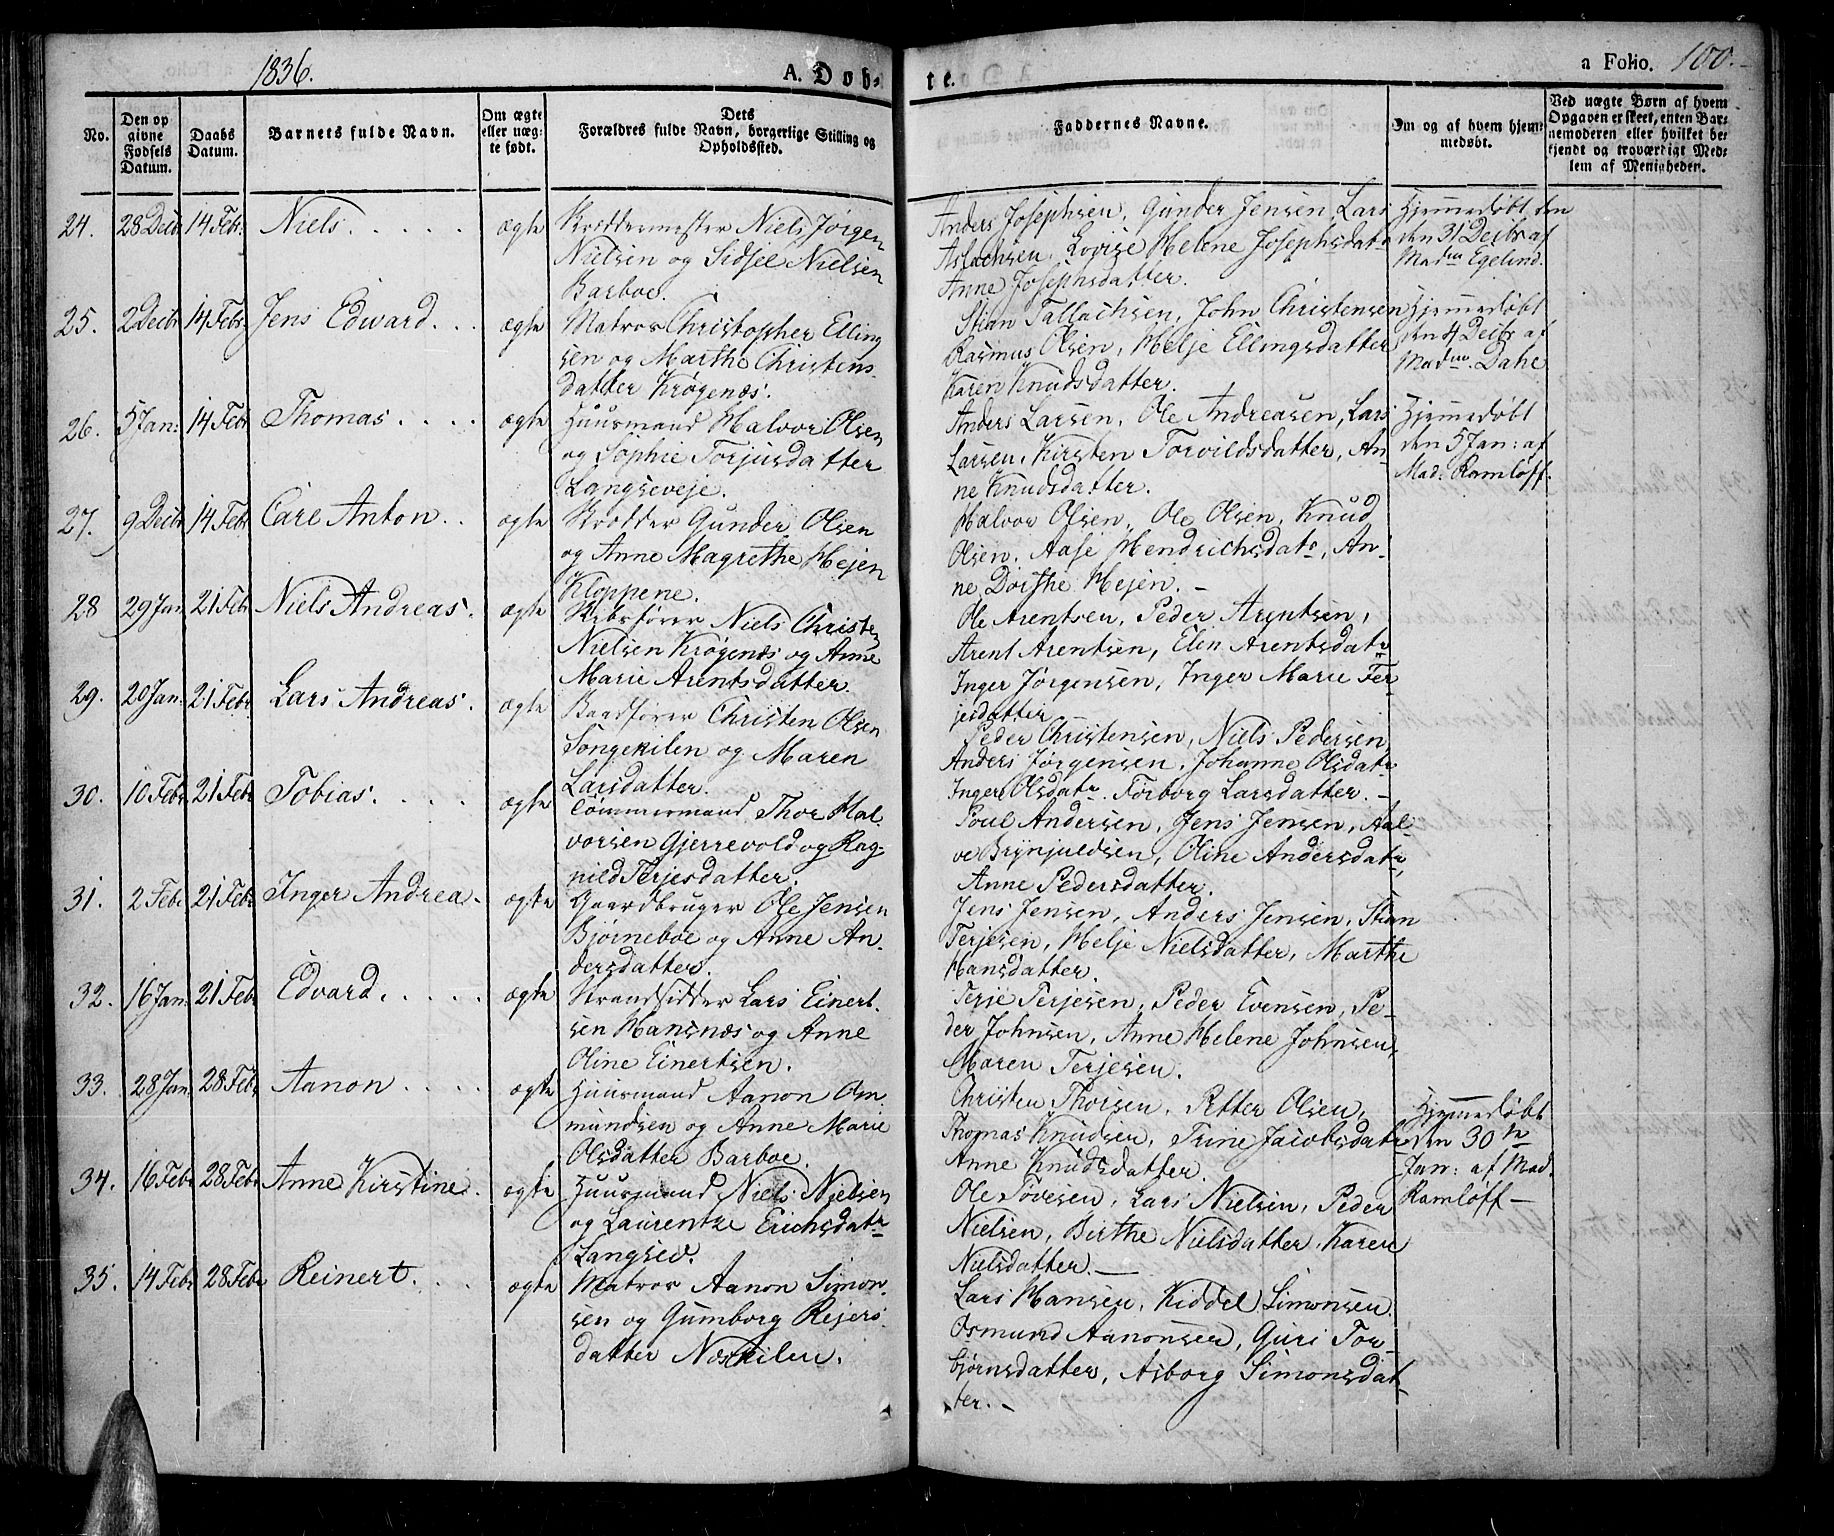 1836.
A. Døb-
te.
a Folio. 100.
No.
Den op
givne
Fødsels
Datum.
Daabs
Datum.
Barnets fulde Navn.
Om ægte
eller uæg-
te født.
Dets
Forældres fulde Navn, borgerlige Stilling og
Opholdssted.
Faddernes Navne.
Om og af hvem hjem-
medøbt.
Ved uægte Børn af hvem
Opgaven er skeet, enten Bar-
nemoderen eller hvilket be-
kjendt og troværdigt Med-
lem af Menigheden.
24. 28 Decbr 14 Febr. Niels. ægte
Skræddermester Niels Jørgen
Nielsen og Sidsel Nielsen
Barboe.
Anders Josephsen, Gunder Jensen, Lars
Aslachsen, Lovise Helene Josephsdatr
Anne Josephsdatter.
Hjemmedøbt den
den 31 Decbr af
Madm Egelund.
25. 2 Decbr 14 Febr. Jens Edward. ægte
Matros Christopher Elling
sen og Marthe Christens-
datter Krøgenæs.
Stian Tallachsen, John Christensen
Rasmus Olsen, Helje Ellingsdatter
Karen Knudsdatter.
Hjemmedøbt
den 4 Decbr af
Madm. Dahl
26. 5 Jan: 14 Febr Thomas. ægte
Huusmand Halvor Olsen
og Sophie Torjusdatter
Langseveje.
Anders Larsen, Ole Andreasen, Lars
Larsen, Kirsten Torvildsdatter, An-
ne Knudsdatter.
Hjemmedøbt
den 5 Jan: af
Mad: Ramløff.
27. 9 Decbr 14 Febr Carl Anton. ægte
Skrædder Gunder Olsen
og Anne Magrethe Hejen
Kloppene.
Halvor Olsen, Ole Olsen, Knud
Olsen, Aase Hendrichsdatr, An-
ne Dorthe Hejen. –
28 29 Jan. 21 Febr Niels Andreas. ægte
Skibsfører Niels Christen
Nielsen Krøgenæs og Anne
Marie Arentsdatter.
Ole Arentsen, Peder Arentsen,
Arent Arentsen, Elen Arentsdatr
Inger Jørgensen, Inger Marie Ter-
jesdatter
29. 20 Jan. 21 Febr. Lars Andreas. ægte
Baadfører Christen Olsen
Songekilen og Maren
Larsdatter.
Peder Christensen, Niels Pedersen,
Anders Jørgensen, Johanne Olsdatr
Inger Olsdatr. Torborg Larsdatter. –
30. 10 Febr 21 Febr Tobias. ægte
Tømmermand Thor Hal-
vorsen Gjerrevold og Rag-
nild Terjesdatter.
Poul Andersen, Jens Jensen, Aal-
ve Brynjuldsen, Oline Andersdatr,
Anne Pedersdatter.
31. 2 Febr 21 Febr Inger Andrea. ægte
Gaardbruger Ole Jensen
Bjørneboe og Anne An-
dersdatter.
Jens Jensen, Anders Jensen, Stian
Terjesen, Helje Nielsdatter, Marthe
Hansdatter.
32. 16 Jan: 21 Febr Edvard. ægte
Strandsidder Lars Einert-
sen Hansnæs og Anne
Oline Einertsen.
Terje Terjesen, Peder Evensen, Pe-
der Johnsen, Anne Helene Johnsen,
Maren Terjesen.
33. 28 Jan. 28 Febr Aanon. ægte
Huusmand Aanon Om-
mundsen og Anne Marie
Olsdatter Barboe.
Christen Thorsen, Petter Olsen,
Thomas Knudsen, Trine Jacobsdatr
Anne Knudsdatter.
Hjemmedøbt
den 30te
Jan: af Mad.
Ramløff –
34. 16 Febr 28 Febr Anne Kirstine. ægte
Huusmand Niels Nielsen
og Laurentze Erichsdatr
Langsev.
Ole Tovesen, Lars Nielsen, Peder
Nielsen, Birthe Nielsdatter, Karen
Nielsdatter. –
35. 14 Febr 28 Febr Reinert. ægte
Matros Aanon Simon-
sen og Gumborg Rejers-
datter Næskilen.
Lars Hansen, Kiddel Simonsen
Osmund Aanonsen, Guri Tor-
bjørnsdatter, Asborg Simonsdat-
ter. –